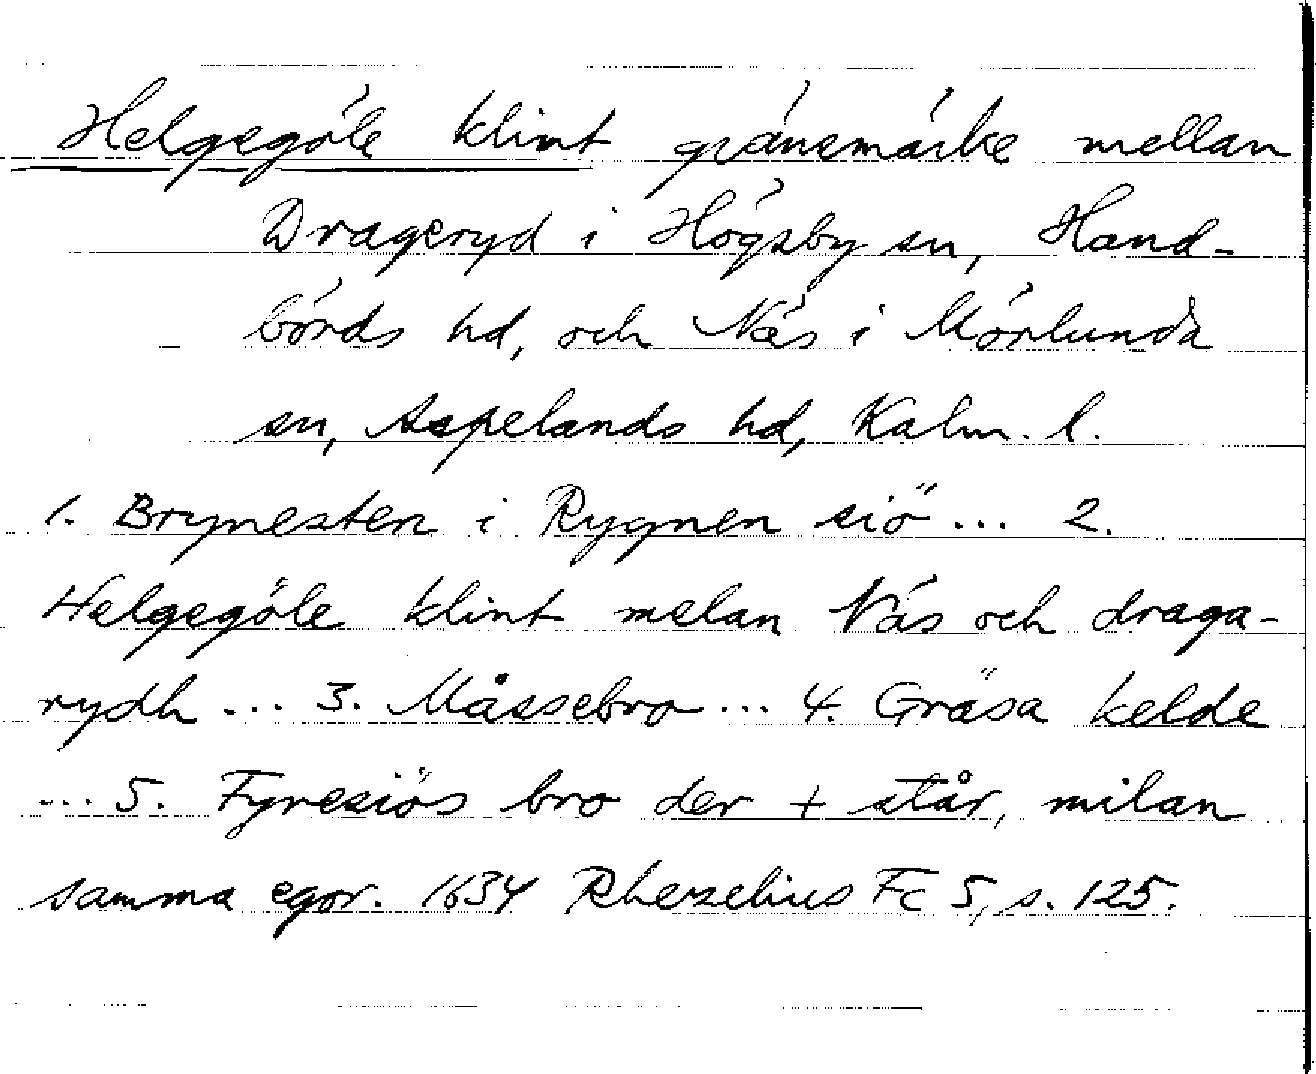 Helgegöle klint gränemärke mellan
Drageryd i Högsby sn, Hand-
börds hd, och Näs i Mörlunda
sn, Aspelands hd, Kalm. l.
1. Brynesten i Rygnen siö ... 2.
Helgegöle klint melan Näs och draga-
rydh ... 3. Måssebro ... 4. Gräsa kelde
... 5. Fyresiös bro der + står, milan
samma egor. 1634 Rhezelius Fc 5, s. 125.